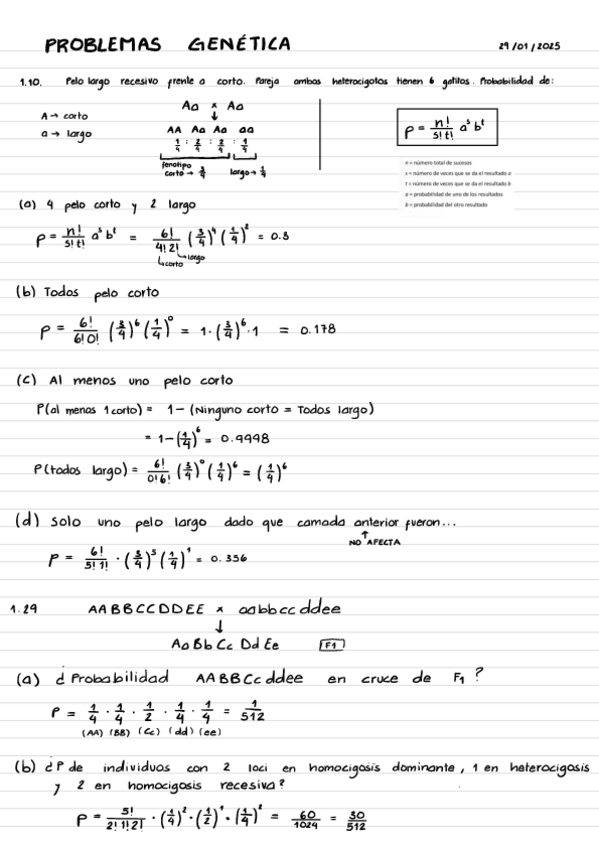 PROBLEMAS GENÉTICA 29/01/2025
1.10. Pelo largo recesivo frente a corto. Pareja ambos heterocigotos tienen 6 gatitos. Probabilidad de:
Aa x Aa
A → corto
a → largo
AA Aa Aa aa
1/4 : 2/4 : 2/4 : 1/4
fenotipo corto → 3/4 largo → 1/4
P = n!/s!t! a^s b^t
n = número total de sucesos
s = número de veces que se da el resultado a
t = número de veces que se da el resultado b
a = probabilidad de uno de los resultados
b = probabilidad del otro resultado
(a) 4 pelo corto y 2 largo
P = n!/s!t! a^s b^t = 6!/4!2! (3/4)^4 (1/4)^2 = 0.3
↳corto ↳largo
(b) Todos pelo corto
P = 6!/6!0! (3/4)^6 (1/4)^0 = 1·(3/4)^6·1 = 0.178
(c) Al menos uno pelo corto
P(al menos 1 corto) = 1 - (Ninguno corto = Todos largo)
= 1-(1/4)^6 = 0.9998
P(todos largo) = 6!/0!6! (3/4)^0 (1/4)^6 = (1/4)^6
(d) Solo uno pelo largo dado que camada anterior fueron...
↑ NO AFECTA
P = 6!/5!1! · (3/4)^5 (1/4)^1 = 0.356
1.29 AABBCCDDEE x aabbccddee
↓
AaBbCcDdEe F1
(a) ¿Probabilidad AABBCcddee en cruce de F1?
P = 1/4 · 1/4 · 1/2 · 1/4 · 1/4 = 1/512
(AA) (BB) (Cc) (dd) (ee)
(b) ¿P de individuos con 2 loci en homocigosis dominante, 1 en heterocigosis
y 2 en homocigosis recesiva?
P = 5!/2!1!2! · (1/4)^2 · (1/2)^1 · (1/4)^2 = 60/1024 = 30/512